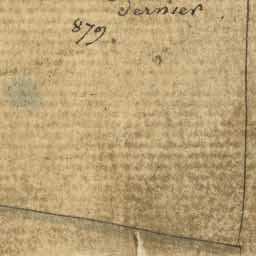 dernier
879